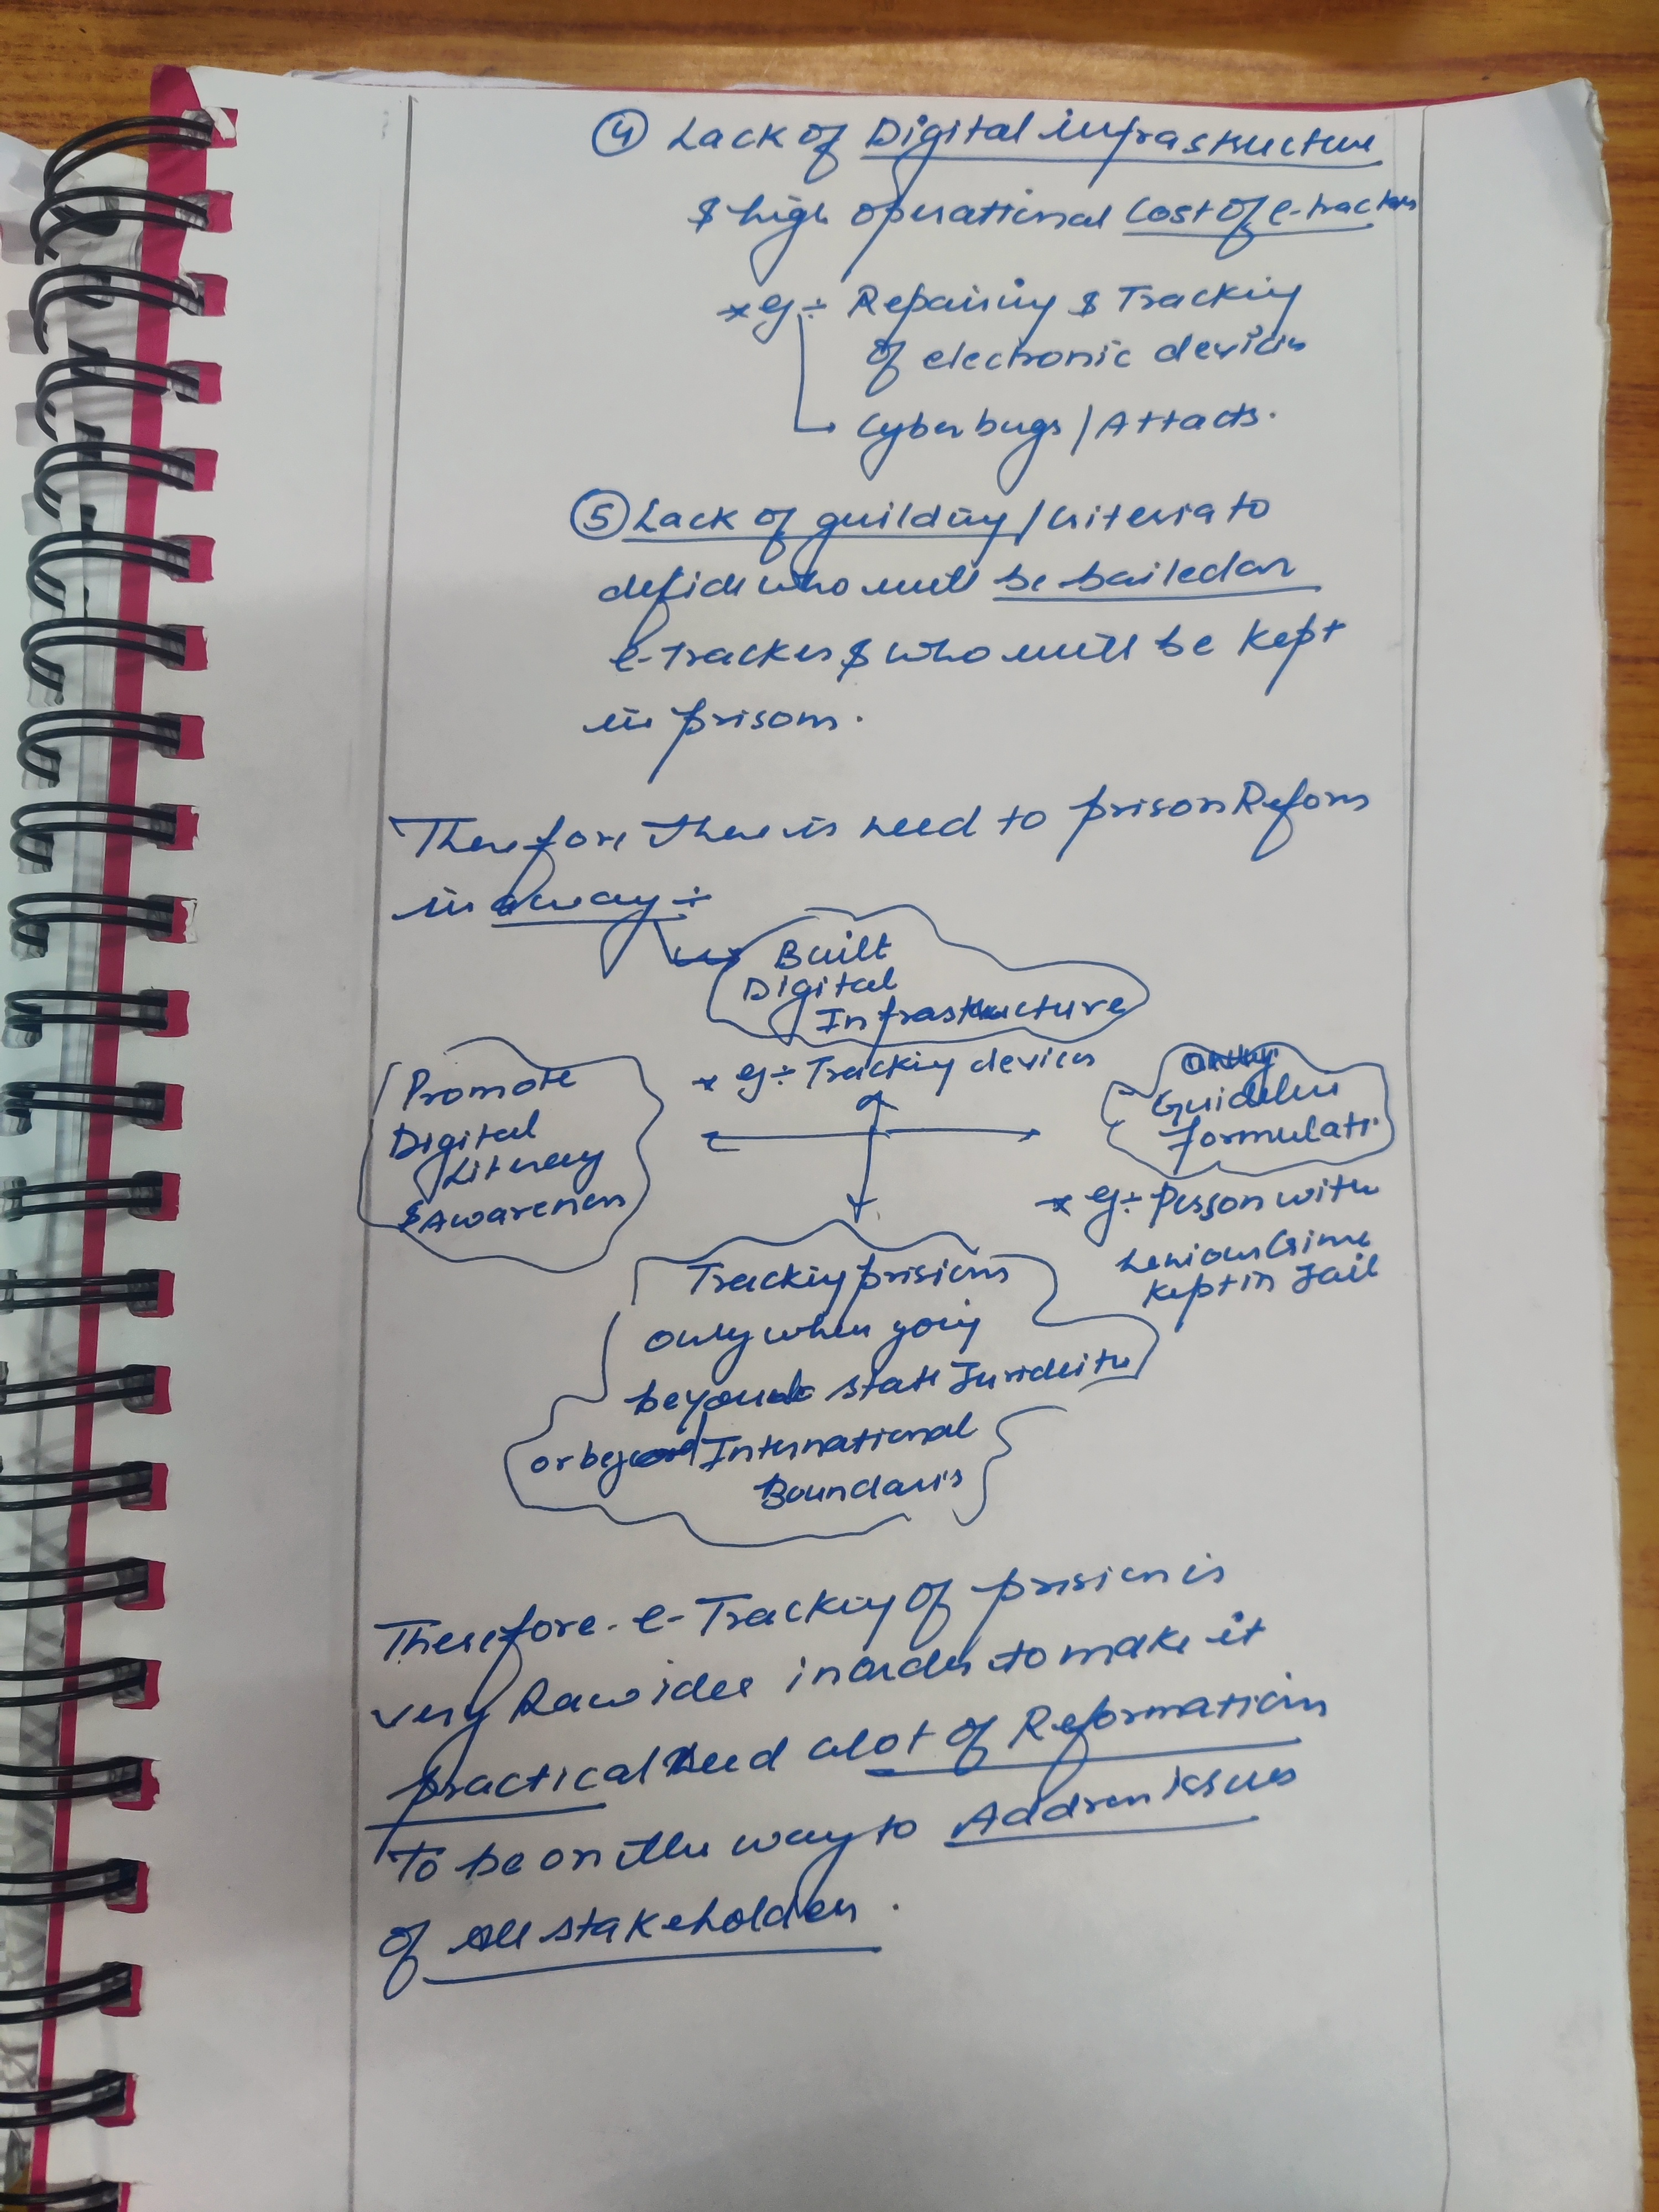 ④ Lack of Digital infrastructure
& high operational Cost of e-trackers
* eg ÷ Repairing & Tracking
of electronic devices
→ Cyber bugs / Attacts.
⑤ Lack of guilding / Criteria to
defide who will be bailed on
e-tracker & who will be Kept
in prison.
Therefore there is need to prison Reform
in away ÷
Built
Digital
Infrastructure
* eg ÷ Tracking devices
Promote
Digital
Literacy
& Awareness
Guidelines
formulati
* eg ÷ Person with
henious Crime
Kept in Jail
Tracking prisions
only when going
beyond state
or beyond International
Boundaris
Therefore - e-Tracking of prision is
very Raw idea in order to make it
practical Need alot of Reformation
To be on the way to Address issues
of All stakeholders.